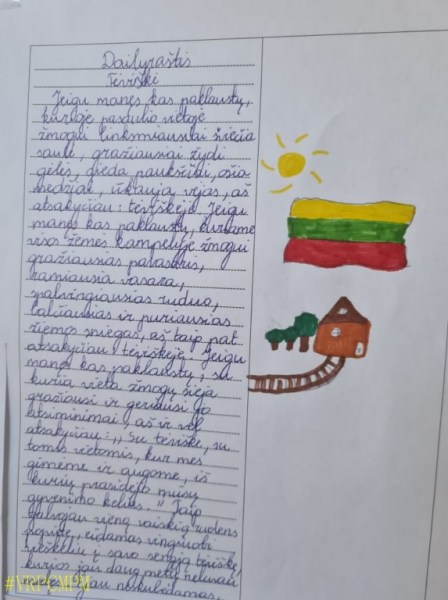 Dailyraštis
Tėviškė
Jeigu manęs kas paklaustų,
kurioje pasaulio vietoje
žmogui linksmiausiai šviečia
saulė, gražiausiai žydi
gėlės, gieda paukščiai, ošia
medžiai, ūkauja vėjas, aš
atsakyčiau: tėviškėje. Jeigu
manęs kas paklaustų, kuriame
viso žemės kampelyje žmogui
gražiausias pavasaris,
ramiausia vasara,
spalvingiausias ruduo,
balčiausias ir puriausias
žiemos sniegas, aš taip pat
atsakyčiau: tėviškėje. Jeigu
manęs kas paklaustų, su
kuria vieta žmogų sieja
gražiausi ir geriausi jo
atsiminimai, aš ir vėl
atsakyčiau: ,,Su tėviške, su
tomis vietomis, kur mes
gimėme ir augome, iš
kurių prasidėjo mūsų
gyvenimo kelias." Taip
galvojau vieną vaiskią rudens
popietę, eidamas vinguriuoti
pėsčiu į savo senąją tėviškę,
kurios jau daug metų nelankiau
neskubėdamas.
#VRPCMPM